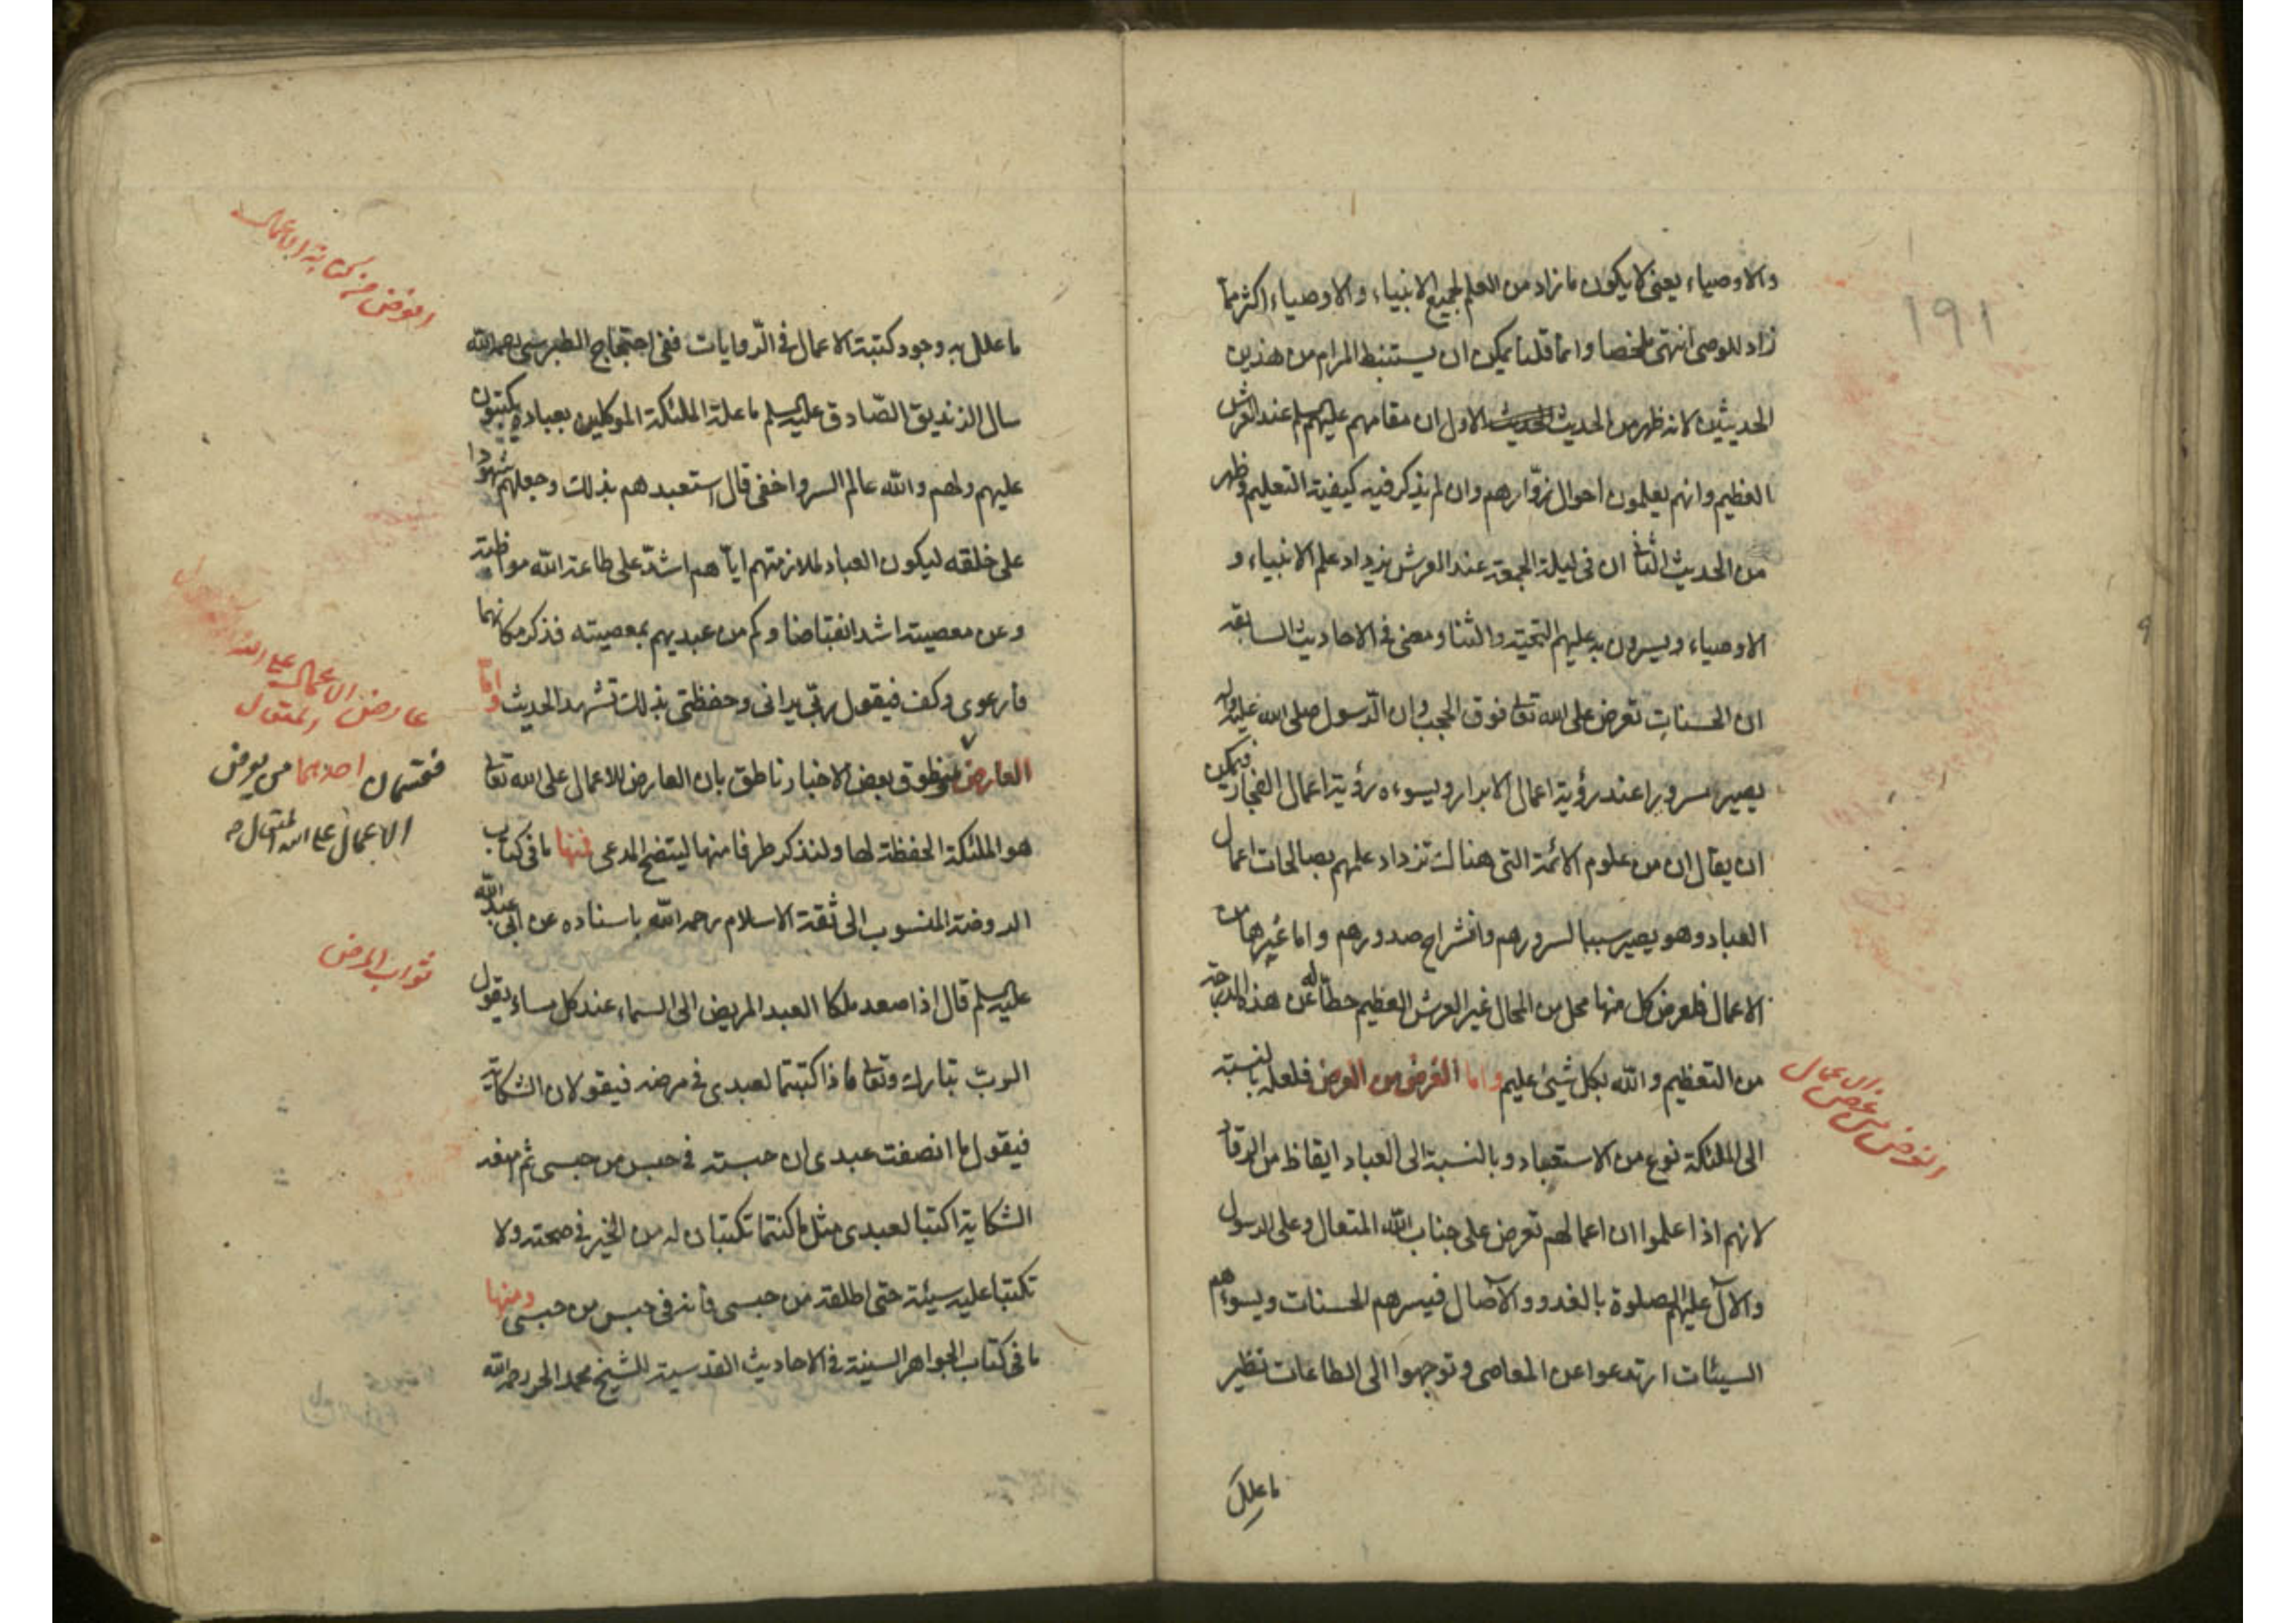 ١٩١
والاوصياء يعنى لا يكون ما زاد من العلم لجميع الانبياء والاوصياء اكثر مما
زاد للوصى انتهى ملخصا وانما قلنا يمكن ان يستنبط المرام من هذين
الحديثين لانه ظهر من الحديث الحديث الاول ان مقامهم عليهم السلم عند العرش
العظيم وانهم يعلمون احوال زوّارهم وان لم يذكر فيه كيفية التعليم وظهر
من الحديث الثانى ان فى ليلة الجمعة عند العرش يزداد علم الانبياء و
الاوصياء ويسرون به عليهم التحية والثنا ومضى فى الاحاديث السابقة
ان الحسنات تعرض على الله تعالى فوق الحجب وان الرّسول صلى الله عليه وآله
يصير مسرورا عند رؤية اعمال الابرار ويسوءه رؤية اعمال الفجار فيمكن
ان يقال ان من علوم الائمة التى هنالك تزداد علمهم بصالحات اعمال
العباد وهو يصير سببا لسرورهم وانشراح صدورهم واما غيرها من
الاعمال فلعرض كل منها محل من المحال غير العرش العظيم حطّا له عن هذه الدرجة
من التعظيم والله بكل شيئ عليم واما الغرض من العرض فلعله بالنسبة
الى الملئكة نوع من الاستعباد وبالنسبة الى العباد ايقاظ من الرقاد
لانهم اذا علموا ان اعمالهم تعرض على جناب الله المتعال وعلى الرسول
والآل عليهم الصلوة بالغدو والآصال فيسرهم الحسنات ويسوءهم
السيئات ارتدعوا عن المعاصى وتوجهوا الى الطاعات نظير
ما علل
الغرض من عرض الاعمال
ما علل به وجود كتبة الاعمال فى الرّوايات ففى احتجاج الطبرسى رحمه الله
سال الزنديق الصّادق عليه السلم ما علة الملئكة الموكلين بعباده يكتبون
عليهم ولهم والله عالم السر واخفى قال استعبدهم بذلك وجعلهم شهودا
على خلقه ليكون العباد لملازمتهم ايّاهم اشدّ على طاعة الله مواظبة
وعن معصيته اشد انقباضا وكم من عبد يهم بمعصيته فذكر مكانهما
فارعوى وكف فيقول ربّى يرانى وحفظتى بذلك تشهد الحديث وامّا
العارض فمنطوق بعض الاخبار ناطق بان العارض للاعمال على الله تعالى
هو الملئكة الحفظة لها ولنذكر طرفا منها ليتضح المدعى فمنها ما فى كتاب
الروضة المنسوب الى ثقة الاسلام رحمه الله باسناده عن ابى عبد الله
عليه السلم قال اذا صعد ملكا العبد المريض الى السماء عند كل مساء يقول
الربّ تبارك وتعالى ماذا كتبتما لعبدى فى مرضه فيقولان الشكاية
فيقول ما انصفت عبدى ان حبسته فى حبس من حبسى ثم امنعه
الشكاية اكتبا لعبدى مثل ما كنتما تكتبان له من الخير فى صحته ولا
تكتبا عليه سيئة حتى اطلقه من حبسى فانه فى حبس من حبسى ومنها
ما فى كتاب الجواهر السنية فى الاحاديث القدسية للشيخ محمد الحر رحمه الله
الغرض من كتابة الاعمال
عارض الاعمال على الله المتعال
فقسمان احدهما من يعرض
الاعمال على الله المتعال
ثواب المرض